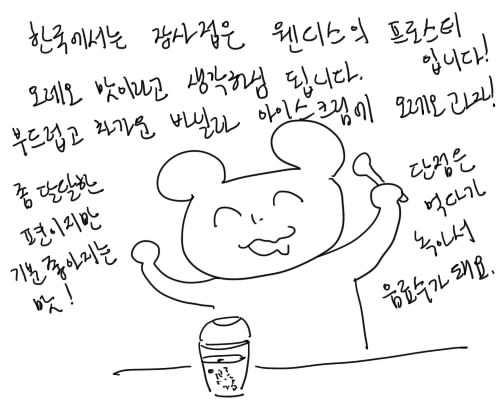 한국에서는 장사접은 웬디스의 프로스티
입니다!
오레오 맛이라고 생각하심 됩니다.
부드럽고 차가운 바닐라 아이스크림에 오레오 과자!
좀 달달한
편이지만
기분 좋아지는
맛!
단점은
먹다가
녹아서
음료수가 돼요.